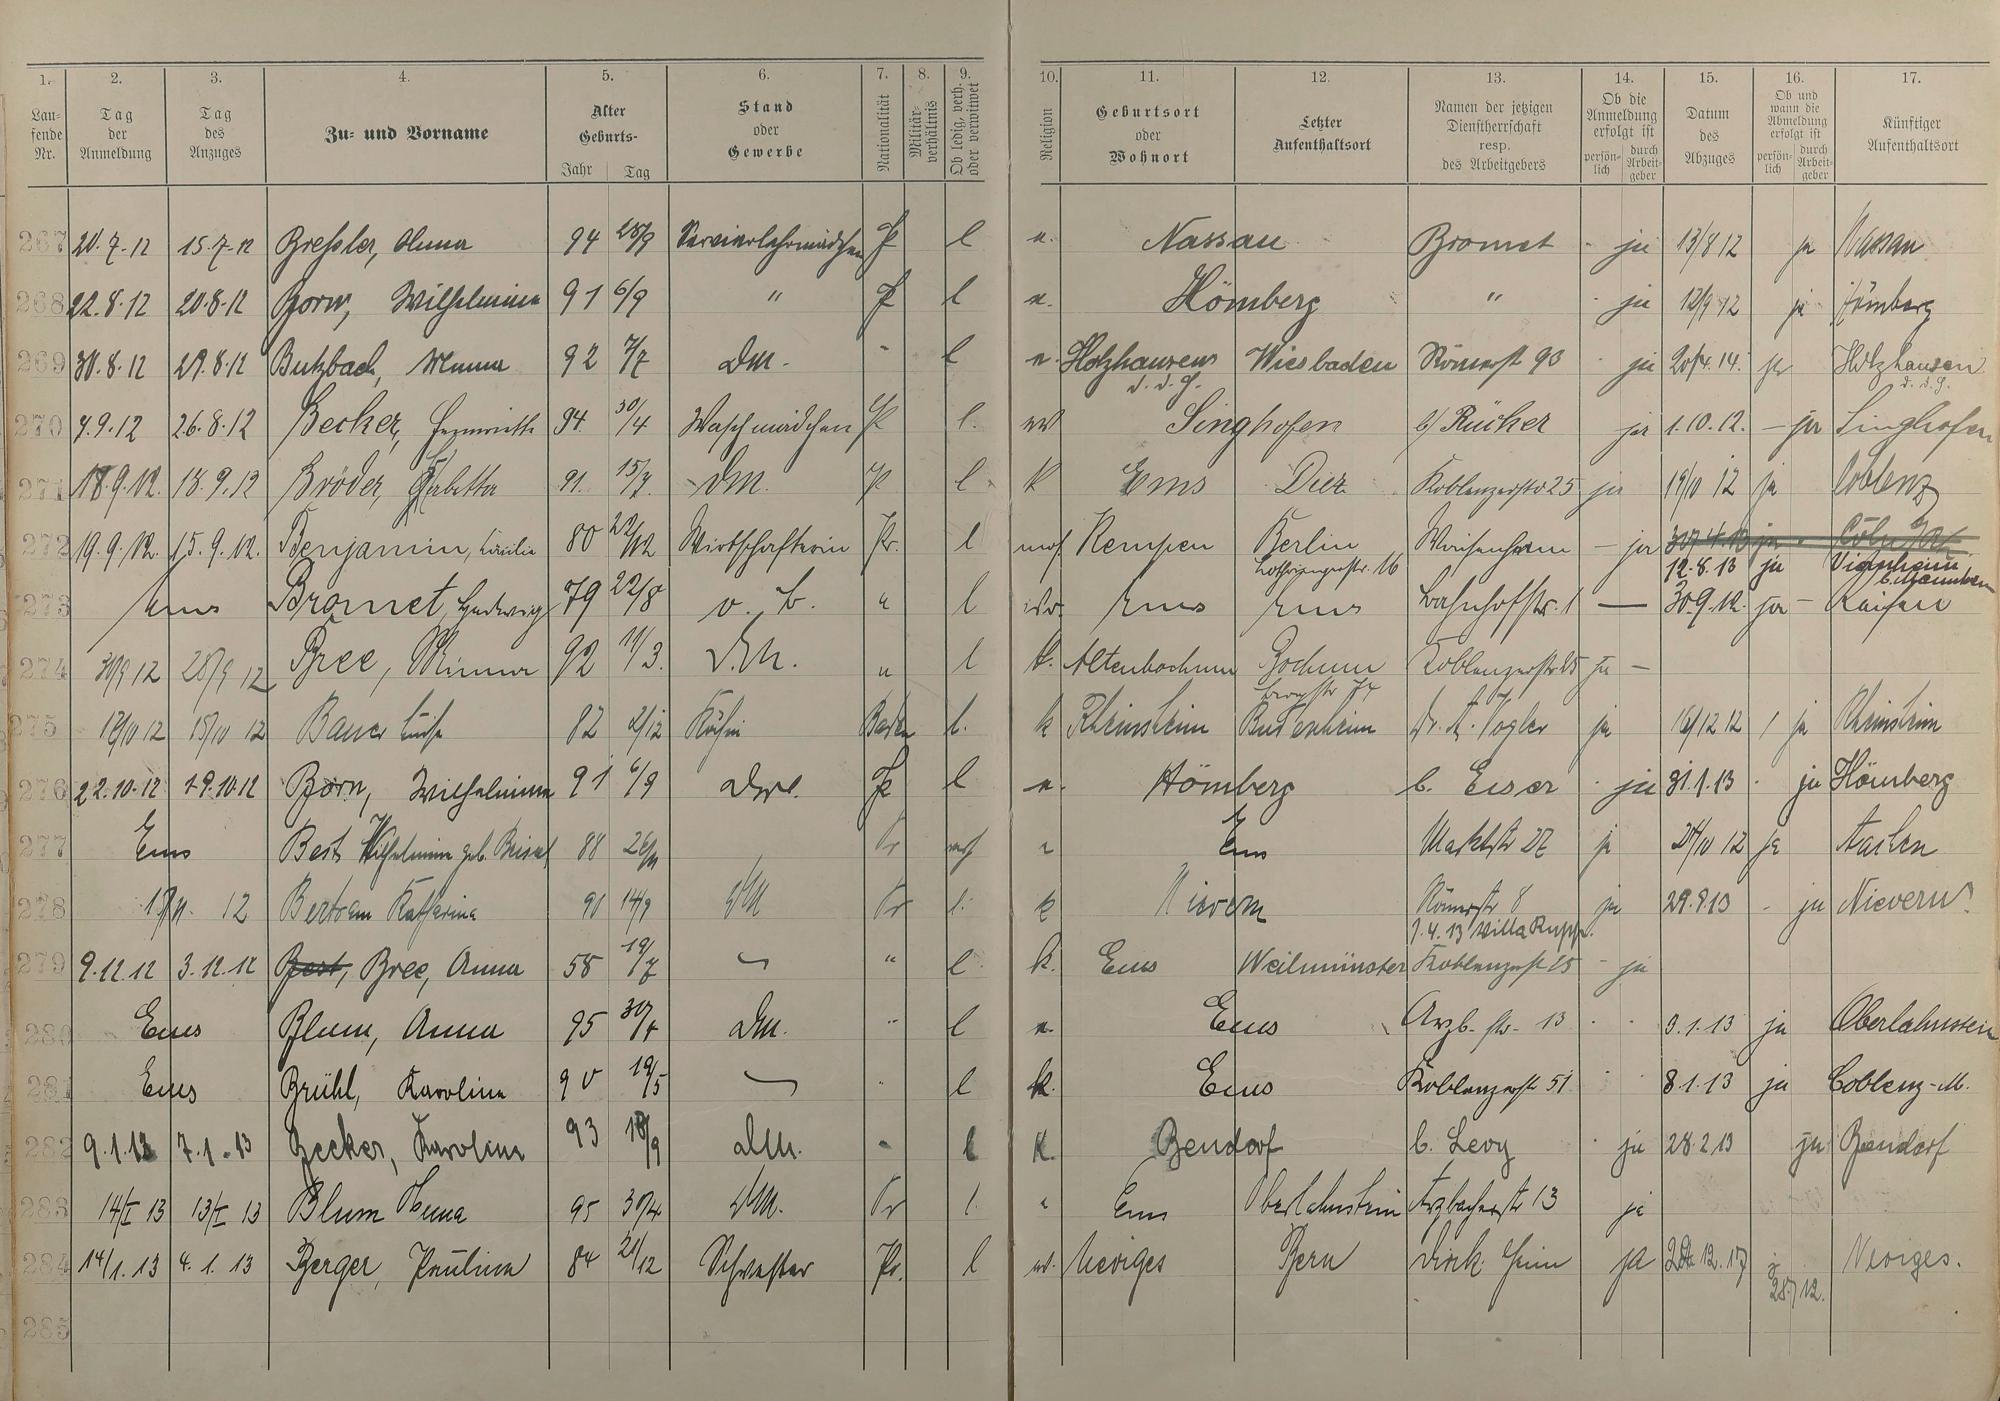 1. 2. 3. 4. 5. 6. 7. 8. 9. 10. 11. 12. 13. 14. 15. 16. 17.
Laufende Nr. Tag der Anmeldung Tag des Anzuges Zu- und Vorname Alter Geburts- Jahr Tag Stand oder Gewerbe Nationalität Militärverhältnis Ob ledig, verh. oder verwitwet Religion Geburtsort oder Wohnort Letzter Aufenthaltsort Namen der jetzigen Dienstherrschaft resp. des Arbeitgebers Ob die Anmeldung erfolgt ist persönlich durch Arbeitgeber Datum des Abzuges Ob und wann die Abmeldung erfolgt ist persönlich durch Arbeitgeber Künftiger Aufenthaltsort
267 20.7.12 15.7.12 Breßler, Anna 94 Servierlehrmädchen P l e. Nassau Bromet ja 13/8 12 ja Nassau
268 22.8.12 20.8.12 Born, Wilhelmine 91 6/9 " P l e. Hömberg " ja 12/9 12 ja Hömberg
269 30.8.12 29.8.12 Butzbach, Minna 92 7/7 DM. " l e. Holzhausen Wiesbaden Römerst 93 ja 20/4.14. ja Holzhausen
270 7.9.12 26.8.12 Becker, Henriette 94 30/4 Waschmädchen P l. ev Singhofen b/ Rücker ja 1.10.12. — ja Singhofen
271 18.9.12. 18.9.12 Bröder, Babetta 91. 15/7. DM. P l k Ems Diez Koblenzerstr 25 ja 19/10 12 ja Coblenz
272 19.9.12. 15.9.12. Benjamin, Cäcilie 80 22/12 Wirtschafterin Pr. l mos. Kempen Berlin — ja ja Cöln
Lothringerstr. 16 12.8.13 ja Viernheim b. Mannheim
273 Ems Bromet, Hedwig 79 22/8 o. b. " l isr. Ems Ems Bahnhofstr. 1 — 30.9.12. ja —
274 30/9 12 28/9 12 Bree, Minna 92 11/3. D.M. " l k. Altenbochum Bochum Koblenzerstr 25 ja —
275 17/10 12 15/10 12 Bauer Luise 82 2/12 Köchin Baden l. k Rheinsheim Budenheim Dr. A. Vogler ja 16/12 12 / ja Rheinsheim
276 22.10.12 19.10.12 Born, Wilhelmine 91 6/9 P l e. Hömberg b. Eiser ja 31.1.13 ja Hömberg
277 Ems Best Wilhelmine geb. 88 Pr e Ems Marktstr ja 24/10 12 ja Aachen
278 12 Bertram Katharina 90 14/9 DM Pr l. k Nievern Römerstr 8 ja 29.8.13 - ja Nievern
1.4.13 Villa Rupp.
279 9.12.12 3.12.12 Bree, Anna 58 19/7 " l k. Ems Weilmünster Koblenzerst 25 - ja
280 Ems Blum, Anna 95 30/4 DM. " l e. Ems Arzb. str. 13 3.1.13 ja Oberlahnstein
281 Ems Brühl, Karoline 90 19/5 " l k. Ems Koblenzerstr 51 8.1.13 ja Coblenz-M.
282 9.1.13 7.1.13 Becker, Karoline 93 18/9 DM. " l K. Bendorf b. Levy ja 28.2.13 ja Bendorf
283 14/I 13 13/I 13 Blum Anna 95 30/4 DM. Pr l. e Ems Oberlahnstein Arzbacherstr 13 ja
284 14/1.13 4.1.13 Berger, Pauline 84 21/12 Schwester Pr. l ev. Neviges Bern Diak. Heim ja 12.17 Neviges.
28./12.
285